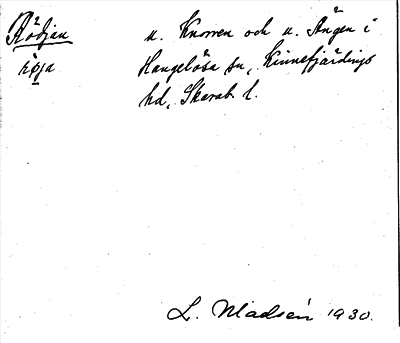 Rödjan u. Knorren och u. Ängen i
röja Hangelösa sn, Kinnefjärdings
hd, Skarab. l.
L. Madsén 1930.